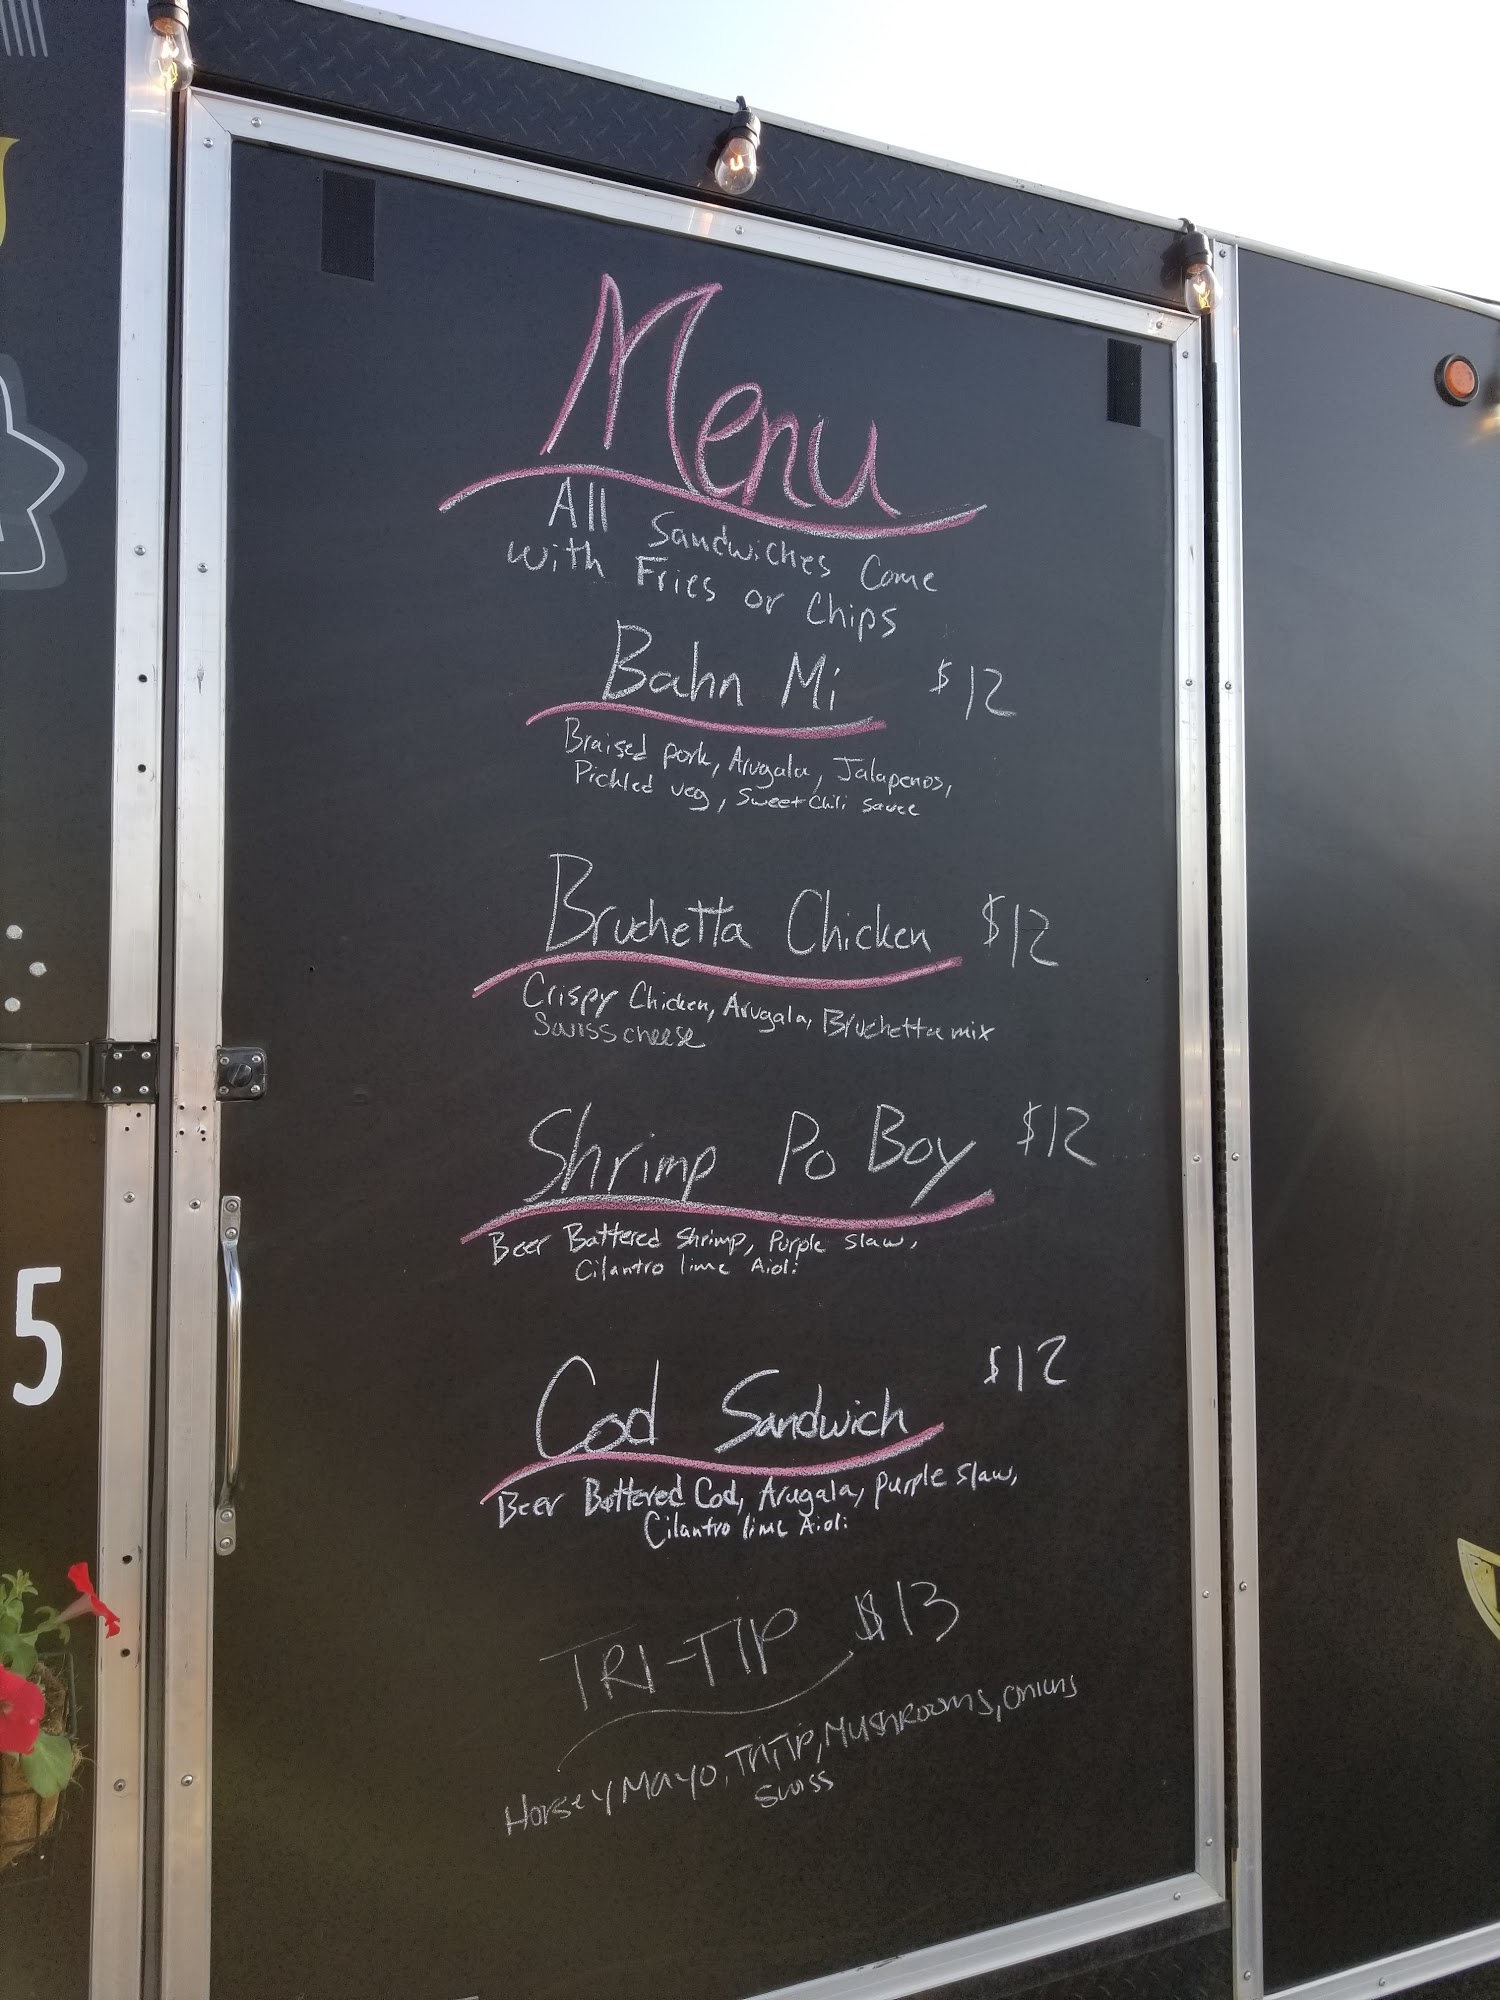 Menu
All Sandwiches Come
with Fries or Chips
Bahn Mi $12
Braised pork, Arugala, Jalapenos,
Pickled veg, Sweet Chili sauce
Bruchetta Chicken $12
Crispy Chicken, Arugala, Bruchetta mix
Swiss cheese
Shrimp Po Boy $12
Beer Battered Shrimp, Purple slaw,
Cilantro lime Aioli
Cod Sandwich $12
Beer Battered Cod, Arugala, purple slaw,
Cilantro lime Aioli
TRI-TIP $13
Horsey Mayo, TRiTiP, Mushrooms, onions
Swiss
5